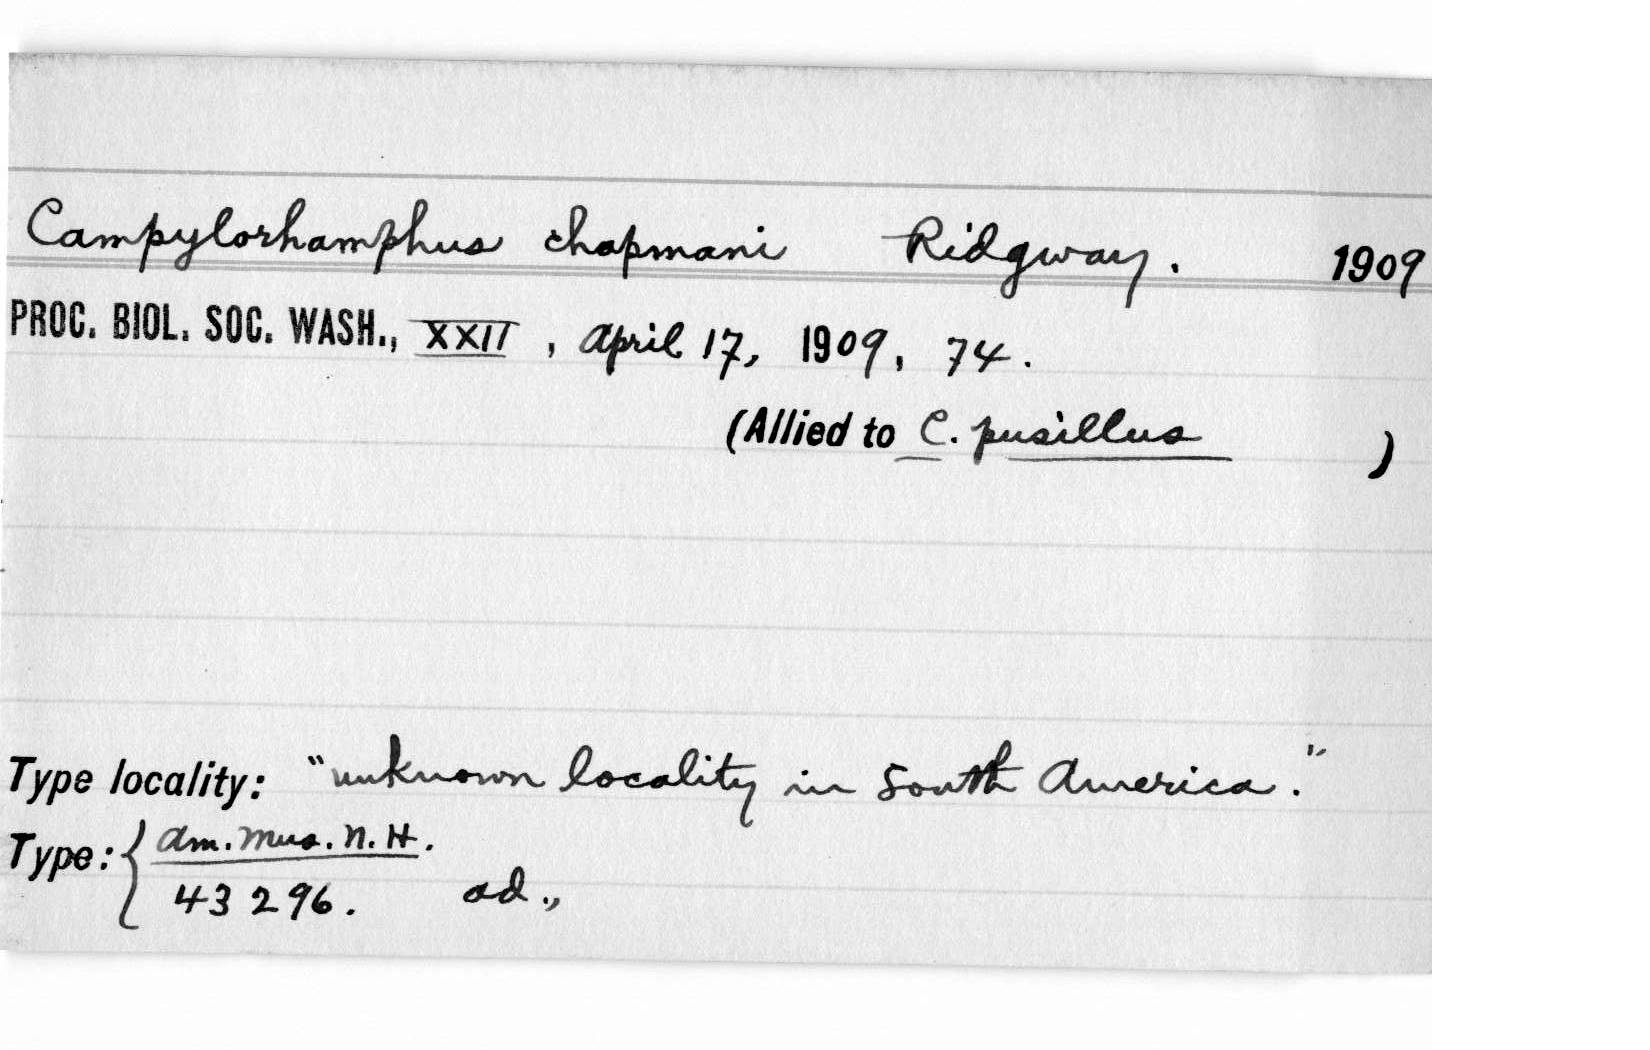 Campylorhamphus chapmani Ridgway. 1909
PROC. BIOL. SOC. WASH., XXII, April 17, 1909, 74.
(Allied to C. pusillus )
Type locality: "unknown locality in South America."
Type: { Am. Mus. N. H.
43296. ad.,